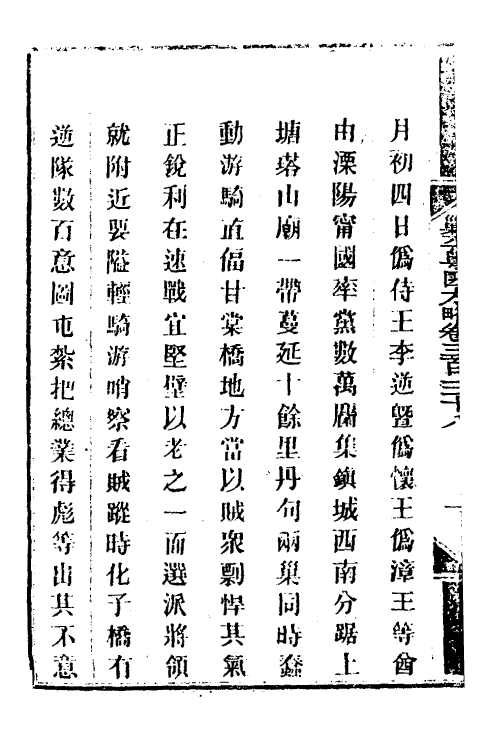 月初四日僞侍王李逆曁僞懷王僞漳王等會
由溧陽甯國率黨數萬麕集鎭城西南分踞上
塘塔山廟一帶蔓延十餘里丹句兩巢同時蠢
動游騎直偪甘棠橋地方當以賊衆剽悍其氣
正銳利在速戰宜堅壁以老之一面選派將領
就附近要隘輕騎游哨察看賊蹤時化子橋有
逆隊數百意圖屯紮把總業得彪等出其不意
方略卷三百三十八